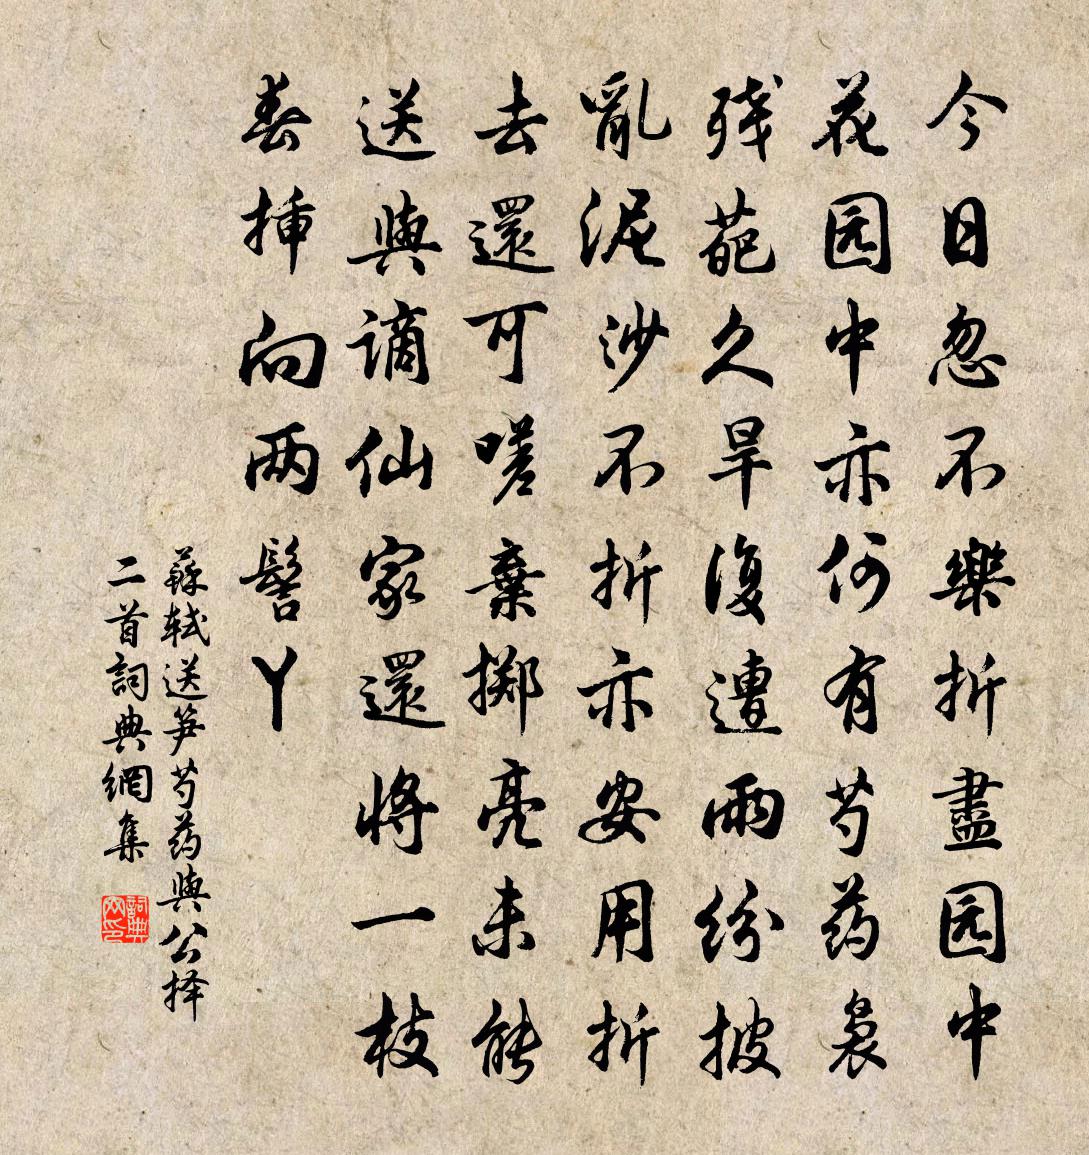 今日忽不樂折盡园中
花园中亦何有芍药袅
残葩久旱復遭雨紛披
亂泥沙不折亦安用折
去還可嗟棄擲亮未能
送與謫仙家還將一枝
春插向两髻丫
蘇轼送笋芍药與公择
二首詞典網集
詞典网印